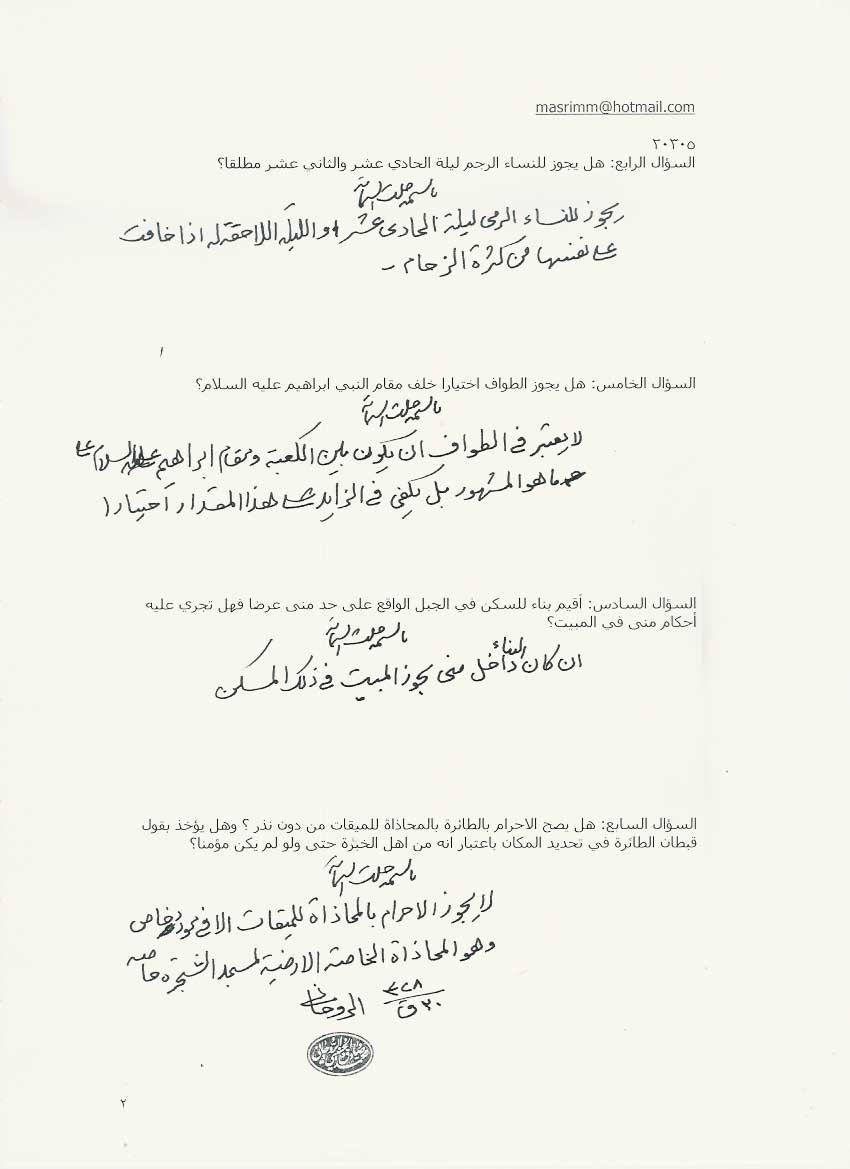 masrimm@hotmail.com
٢٠٣٠٥
السؤال الرابع: هل يجوز للنساء الرجم ليلة الحادي عشر والثاني عشر مطلقا؟
باسمه جلت اسمائه
يجوز للنساء الرمى ليلة الحادى عشر و الليلة اللاحقة له اذا خافت
على نفسها من كثرة الزحام -
السؤال الخامس: هل يجوز الطواف اختيارا خلف مقام النبي ابراهيم عليه السلام؟
باسمه جلت اسمائه
لا يعتبر فى الطواف ان يكون بين الكعبة ومقام ابراهيم عليه السلام على
ما هو المشهور بل يكفى فى الزايد على هذا المقدار اختيارا
السؤال السادس: أقيم بناء للسكن في الجبل الواقع على حد منى عرضا فهل تجري عليه
أحكام منى في المبيت؟
باسمه جلت اسمائه
ان كان البناء داخل منى يجوز المبيت فى ذلك المسكن
السؤال السابع: هل يصح الاحرام بالطائرة بالمحاذاة للميقات من دون نذر ؟ وهل يؤخذ بقول
قبطان الطائرة في تحديد المكان باعتبار انه من اهل الخبرة حتى ولو لم يكن مؤمنا؟
باسمه جلت اسمائه
لا يجوز الاحرام بالمحاذاة للميقات الا فى مورد خاص
وهو المحاذاة الخاصة الارضية لمسجد الشجرة خاصة
٣٠ ق الروحانى
٢